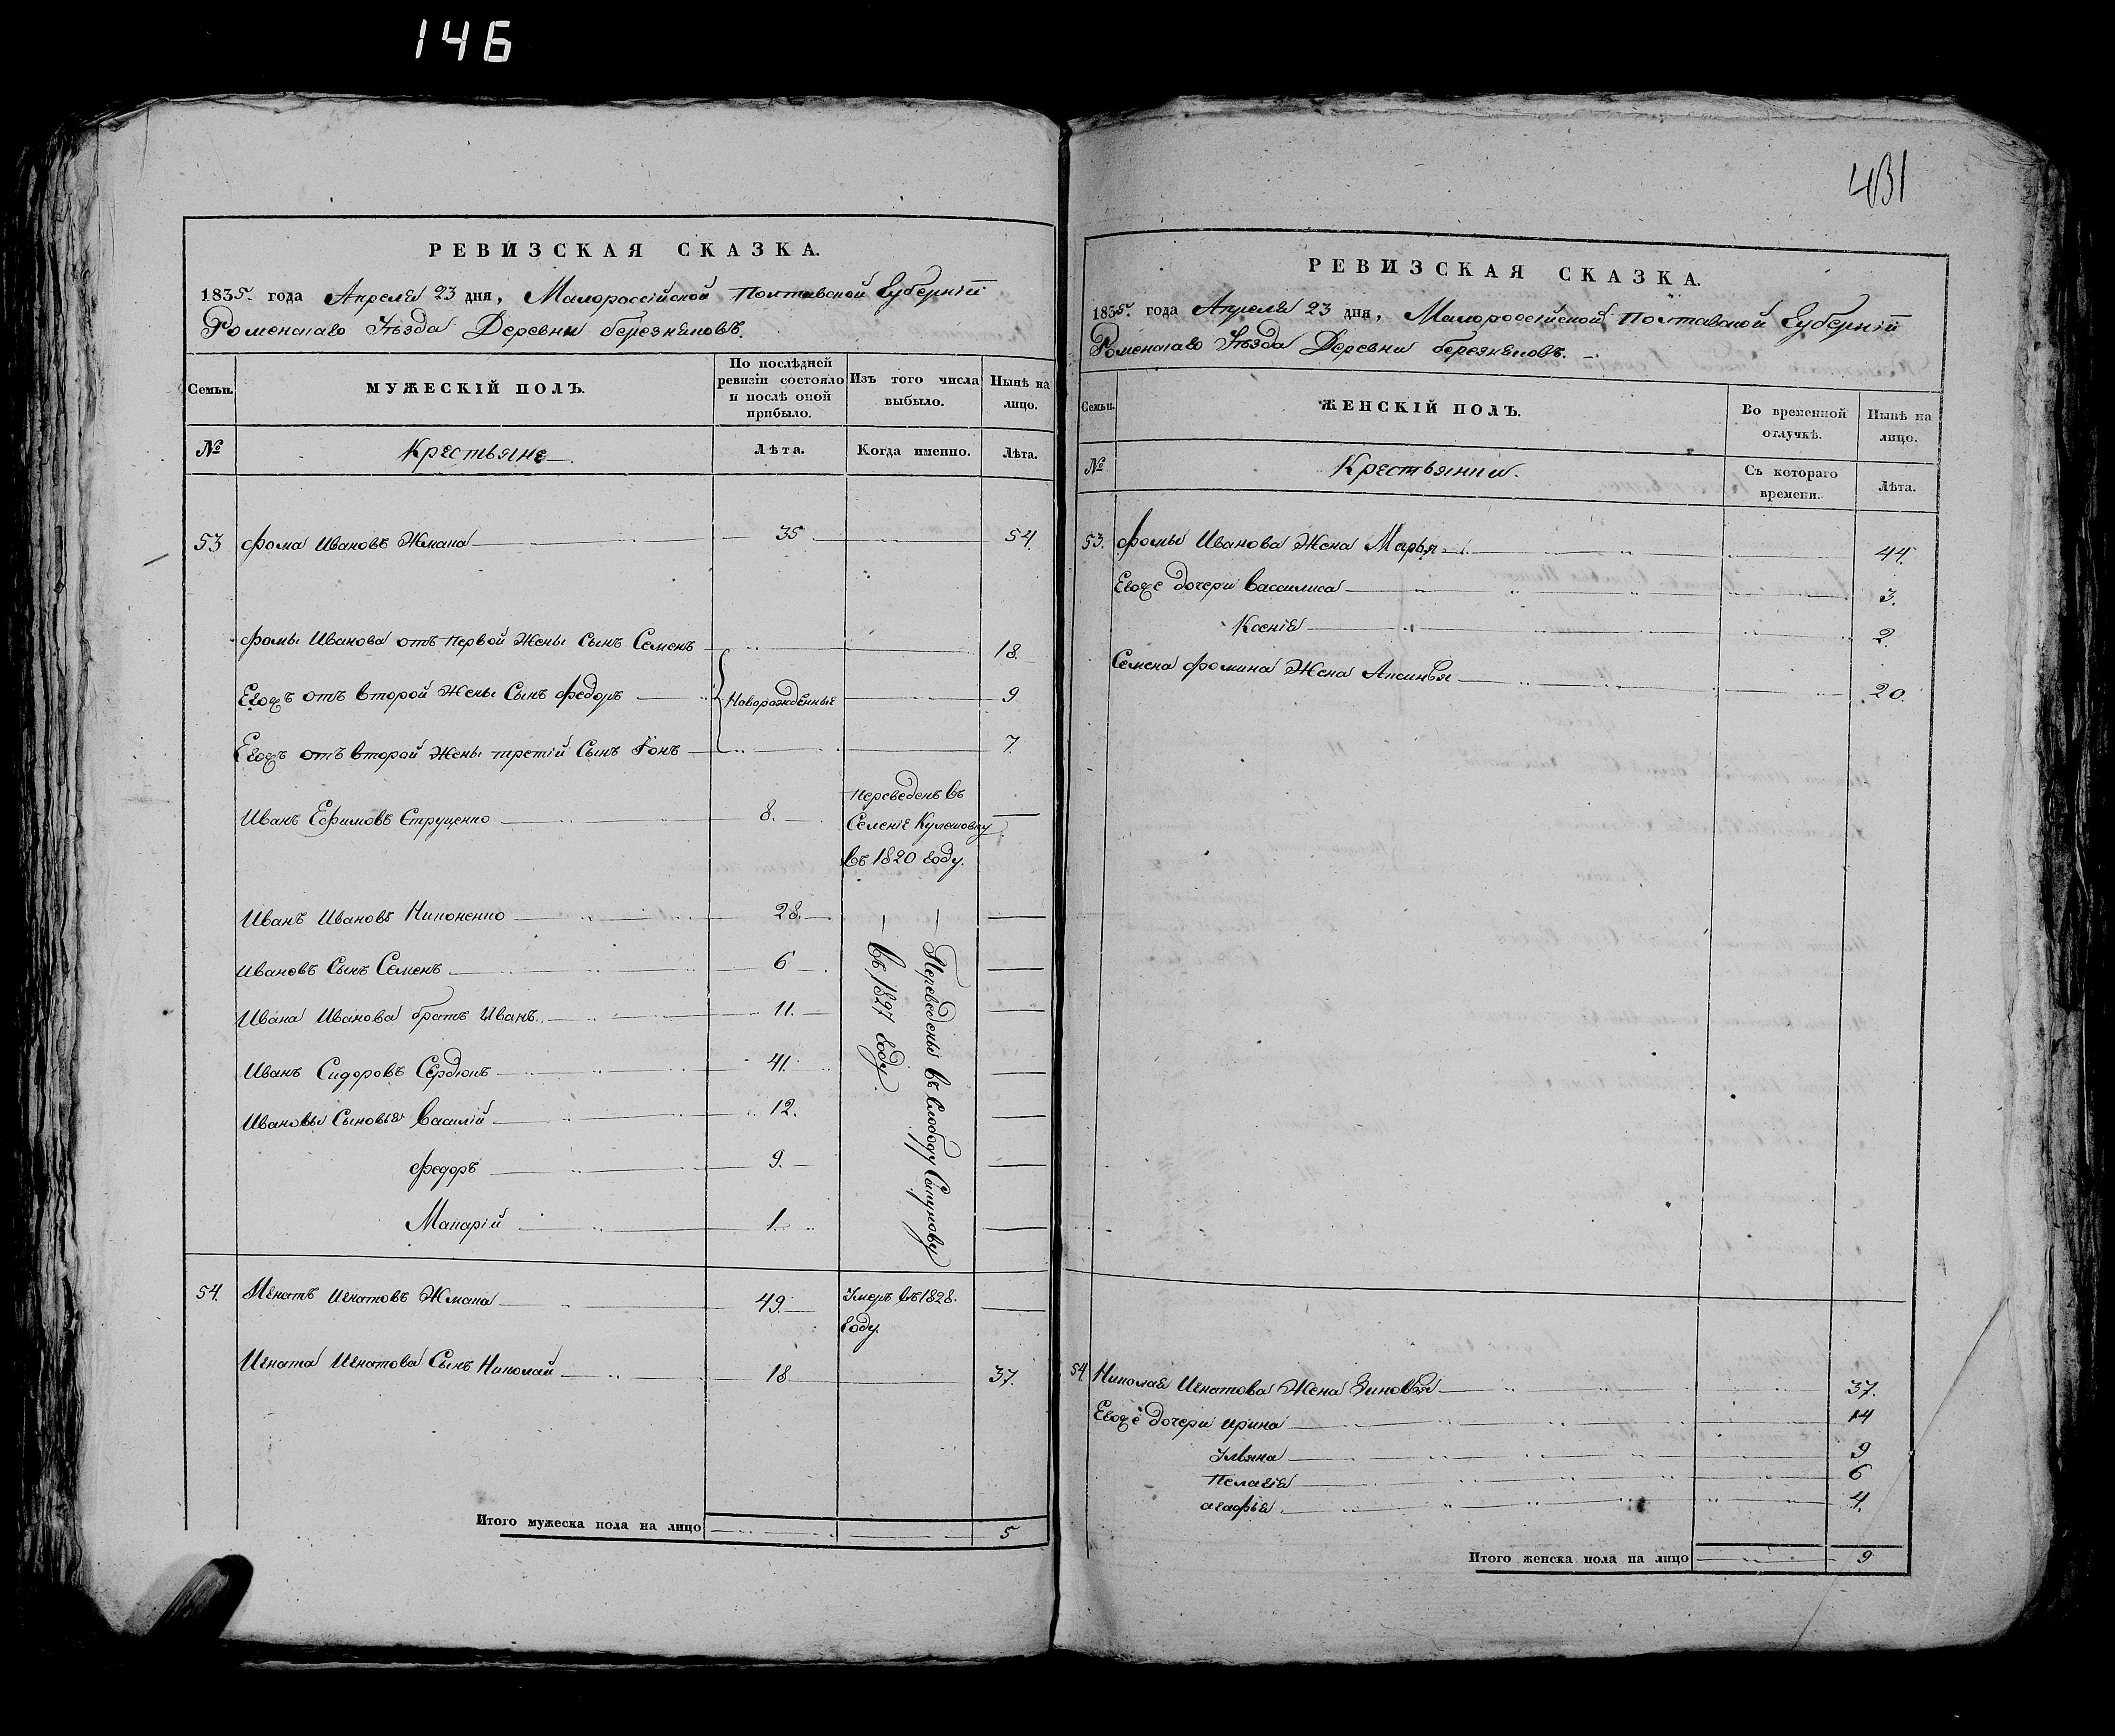 146
РЕВИЗСКАЯ СКАЗКА.
1835. года Апреля 23 дня, Малороссійской Полтавской Губерніи
Роменскаго Уѣзда Деревни березняковъ.
Семьи.
МУЖЕСКІЙ ПОЛЪ.
По послѣдней
ревизіи состояло
и послѣ оной
прибыло.
Изъ того числа
выбыло.
Нынѣ на
лицо.
№
Крестьяне
Лѣта.
Когда именно.
Лѣта.
53 Фома Ивановъ Жмака 35 54.
Фомы Иванова отъ первой Жены Сынъ Семенъ 18.
Егожъ отъ второй Жены Сынъ Федоръ Новорожденные 9
Егожъ отъ второй Жены третій Сынъ Іонъ 7.
Иванъ Ефимовъ Струценко 8.
Переведенъ въ
Селеніе Кулешовку
въ 1820 году.
Иванъ Ивановъ Никоненко 28.
Ивановъ Сынъ Семенъ 6
Ивана Иванова братъ Иванъ. 11.
Иванъ Сидоровъ Сердюкъ 41.
Ивановы Сыновья Василій 12.
Федоръ 9.
Макарій 1.
Переведены въ Слободу
въ 1827 году
54. Игнатъ Игнатовъ Жмака 49. Умеръ въ 1828.
году.
Игната Игнатова Сынъ Николай 18 37.
Итого мужеска пола на лицо 5
431
РЕВИЗСКАЯ СКАЗКА.
1835. года Апреля 23 дня, Малороссійской Полтавской Губерніи
Роменскаго Уѣзда Деревни березняковъ.
Семьи.
ЖЕНСКІЙ ПОЛЪ.
Во временной
отлучкѣ.
Нынѣ на
лицо.
№
Крестьянки.
Съ котораго
времени.
Лѣта.
53. Фомы Иванова Жена Марья 44.
Егоже дочери Василиса 3.
Ксенія 2.
Семена Фомина Жена Аксинья 20.
54 Николая Игнатова Жена Зиновья 37.
Егоже дочери Ирина 14
Ульяна 9
Пелагія 6
агафія 4.
Итого женска пола на лицо 9